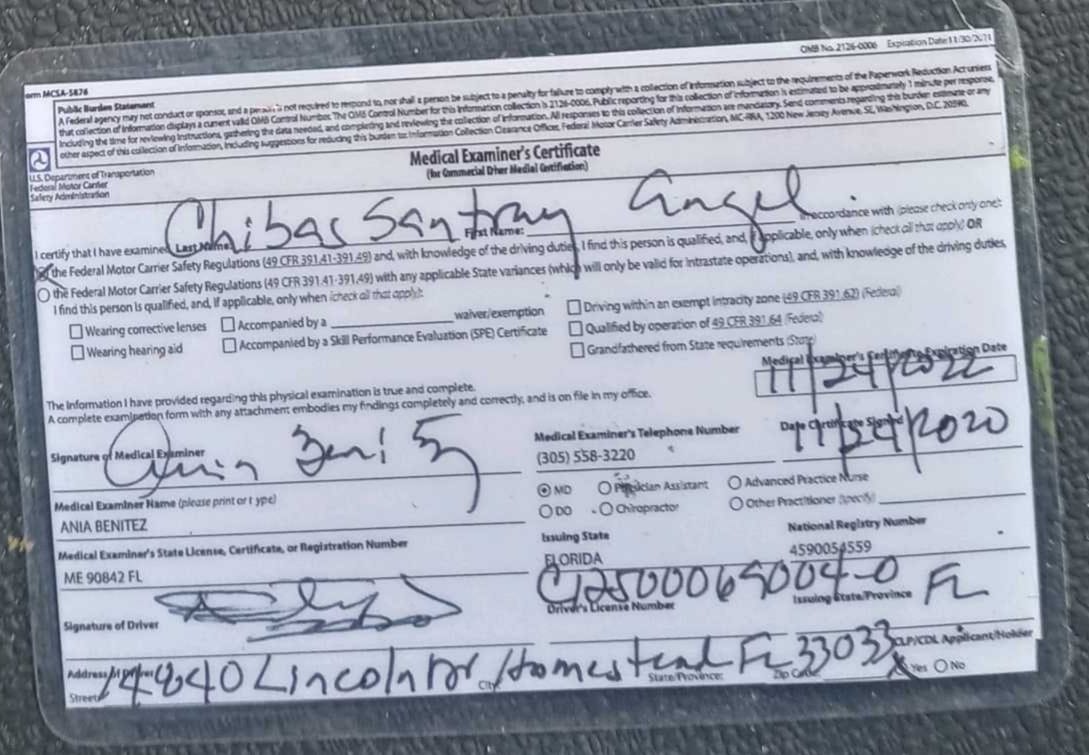 OMB No. 2126-0006 Expiration Date 11/30/2021
orm MCSA-5876
Public Burden Statement
A Federal agency may not conduct or sponsor, and a person is not required to respond to, nor shall a person be subject to a penalty for failure to comply with a collection of information subject to the requirements of the Paperwork Reduction Act unless
that collection of information displays a current valid OMB Control Number. The OMB Control Number for this information collection is 2126-0006. Public reporting for this collection of information is estimated to be approximately 1 minute per response,
including the time for reviewing instructions, gathering the data needed, and completing and reviewing the collection of information. All responses to this collection of information are mandatory. Send comments regarding this burden estimate or any
other aspect of this collection of information, including suggestions for reducing this burden to: Information Collection Clearance Officer, Federal Motor Carrier Safety Administration, MC-RRA, 1200 New Jersey Avenue, SE, Washington, D.C. 20590.
U.S. Department of Transportation
Federal Motor Carrier
Safety Administration
Medical Examiner's Certificate
(for Commercial Driver Medical Certification)
I certify that I have examined Last Name: Chibas Santray First Name: Angel in accordance with (please check only one):
the Federal Motor Carrier Safety Regulations (49 CFR 391.41-391.49) and, with knowledge of the driving duties, I find this person is qualified, and, if applicable, only when (check all that apply) OR
the Federal Motor Carrier Safety Regulations (49 CFR 391.41-391.49) with any applicable State variances (which will only be valid for intrastate operations), and, with knowledge of the driving duties,
I find this person is qualified, and, if applicable, only when (check all that apply):
Wearing corrective lenses Accompanied by a waiver/exemption Driving within an exempt intracity zone (49 CFR 391.62) (Federal)
Wearing hearing aid Accompanied by a Skill Performance Evaluation (SPE) Certificate Qualified by operation of 49 CFR 391.64 (Federal)
Grandfathered from State requirements (State)
Medical Examiner's Certificate Expiration Date
11/24/2022
The information I have provided regarding this physical examination is true and complete.
A complete examination form with any attachment embodies my findings completely and correctly, and is on file in my office.
Signature of Medical Examiner
Medical Examiner's Telephone Number
(305) 558-3220
Date Certificate Signed
11/24/2020
Medical Examiner Name (please print or t ype)
ANIA BENITEZ
MD Physician Assistant Advanced Practice Nurse
DO Chiropractor Other Practitioner (specify)
Medical Examiner's State License, Certificate, or Registration Number
ME 90842 FL
Issuing State
FLORIDA
National Registry Number
4590054559
Signature of Driver
Driver's License Number
Issuing State/Province
FL
Address of Driver
Street: 14840 Lincoln Dr City: Homestead State/Province: FL Zip Code: 33033
CLP/CDL Applicant/Holder
Yes No